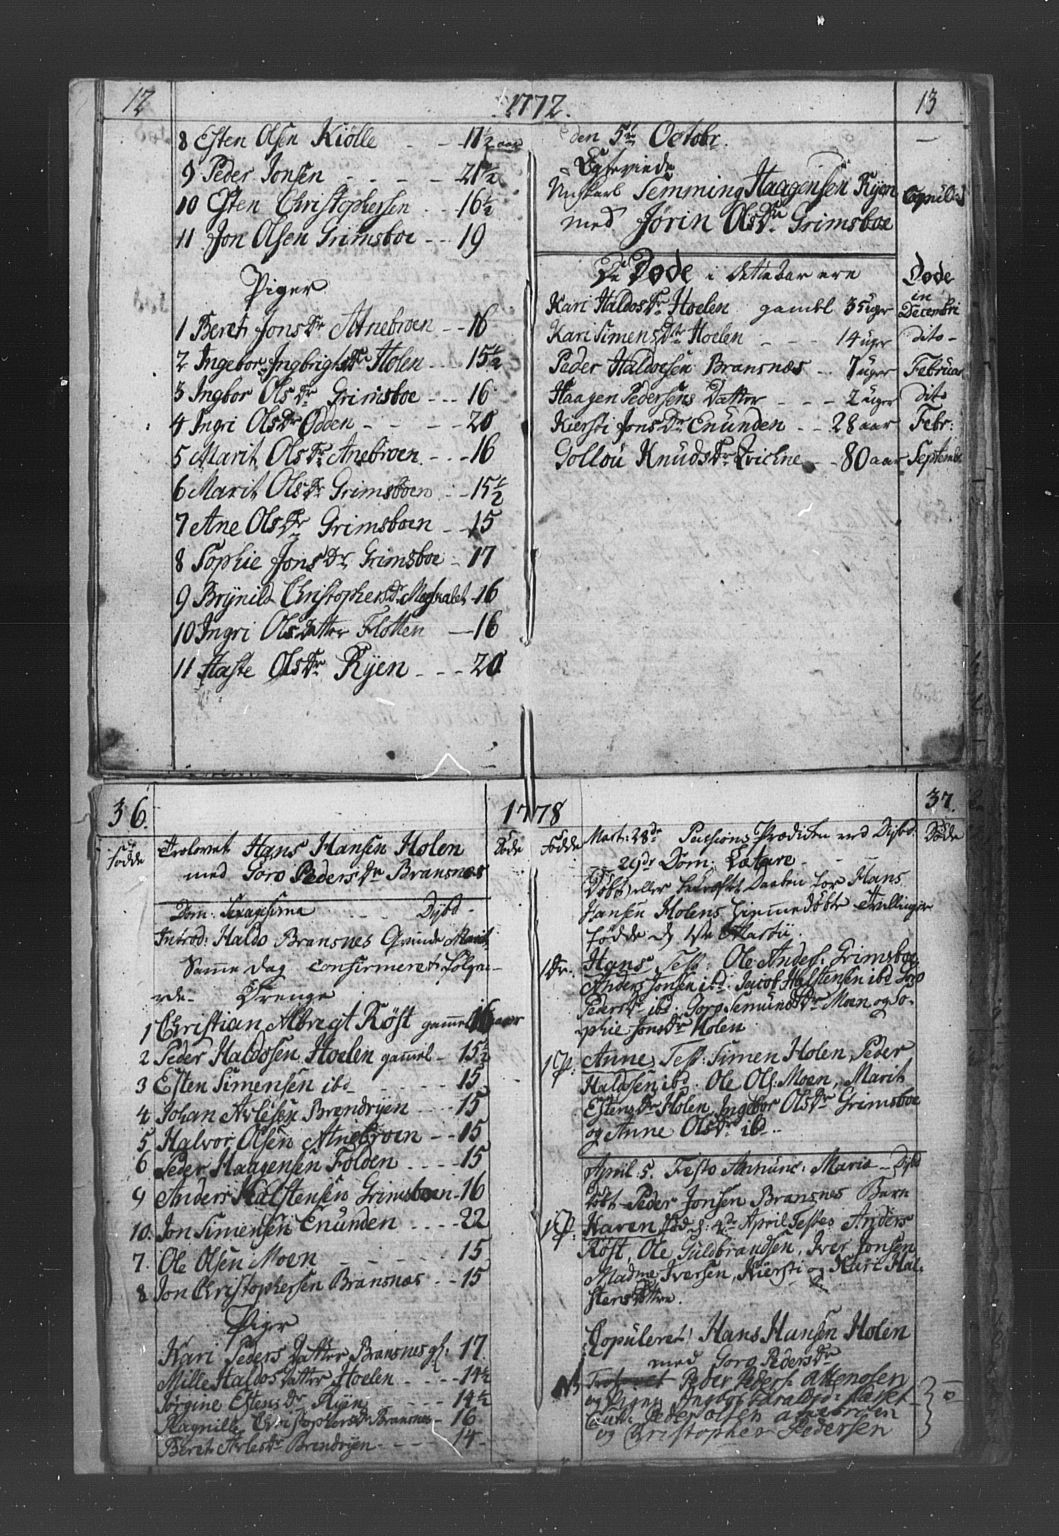 12
1772.
13
8 Esten Olsen Kiölle - - 11½ aar
9 Peder Jonsen - - - - - 21½
10 Esten Christophersen - 16½
11 Jon Olsen Grimsboe - - - 19
Piger
1 Bereth Jons Dr Atnebroen - - 16
2 Ingebor Ingbrigts Dr Holen - - 15½
3 Ingbor Ols Dr Grimsboe - - - 16
4 Ingri Ols Dr Odden - - - - 20
5 Marit Ols Dr Anebroen - - - 16
6 Marit Ols Dr Grimsboen - - 15½
7 Ane Ols Dr Grimsboen - - 15
8 Sophie Jons Dr Grimsboe - 17
9 Brynild Christophers Dr 16
10 Ingri Ols Datter Flotten - 16
11 Ols Dr Ryen - - - 20
den 5te Octobr.
Unkarl Semming Haagensen Ryen
med Jorin Ols Dr Grimsboe
Copuld
De Döde i dette aar ere
Döde
Kari Haldos Dr Hoelen gaml 35 uger
in Decembr
Kari Simens Dr Hoelen - - - 14 uger
dito -
Peder Haldosen Bransnæs - - 7 uger
Februar
Haagen Pedersens Datter - - - 2 uger
dito
Kiersti Jons Dr Enunden - - 28 aar
Febr:
Gollou Knuds Dr - - 80 aar
Septembr
36.
1778
37.
Födde
Trolovet Hans Hansen Holen
med Goro Peders Dr Bransnæs
Döde
Dom: Sexagesima - - Dÿbd -
Introd: Haldo Bransnes Qvinde Marit
Samme dag confirmeret fölgen-
de Drenge
1 Christian Albregt Röst gammel 16 aar
2 Peder Haldosen Hoelen gaml - 15½
3 Esten Simensen ibd - - - - 15
4 Johan Arlesen Brendryen - - - 15
5 Halvor Olsen Atnebroen - - 15
6 Peder Haagensen Folden - - - - 15
9 Anders Halstensen Grimsboen - 16
10. Jon Simensen Enunden - - - - 22
7. Ole Olsen Moen - - - - 15
8 Jon Christophersen Bransnæs - - 15
Pigr
Kari Peders Datter Bransnes gl: 17
Mille Haldos Datter Hoelen - - - 14½
Jörgine Estens Dr Ryen - - - 14½
Ragnille Christophers Dr Bransnes - 16
Beret Arles Dr Brendryen - - - - 14 -
Födde
Mart: 28de Passions Prædiken ved Dÿbd.
Döde
29de Dom: Lætare - - -
Döbt eller bekræftet Daaben for Hans
Hansen Holens hiemmedöbte Tvillinger
födde d 1ste Martii.
1 Dr. Hans Test: Ole Anders: Grimsboe,
Anders Jonsen ibd: Jacob Halstensen ibd Goro
Peders Dr ibd: Goro Semunds Dr Moen og So-
phie Jons Dr Holen
1 P: Anne, Test: Simen Holen, Peder
Haldosen ibd. Ole Ols: Moen, Marit
Estens Dr Holen, Ingebor Ols Dr Grimsboe
og Anne Ols Dr ibd.
April 5. Festo Annunc: Mariæ - Dÿbd
Döbt Peder Jonsen Bransnes Barn
1 P: Karen föd d: 4de April Testes Anders
Röst, Ole Gulebrandsen, Iver Jonsen,
Madme Iversen, Kiersti og Kari Hal-
stens Döttre.
Copuleret: Hans Hansen Holen
med Goro Peders Dr
NB Trolovet Peder Peders:
og Pigen Ingbor
Caut: Peder Olsen
og Christopher Pedersen